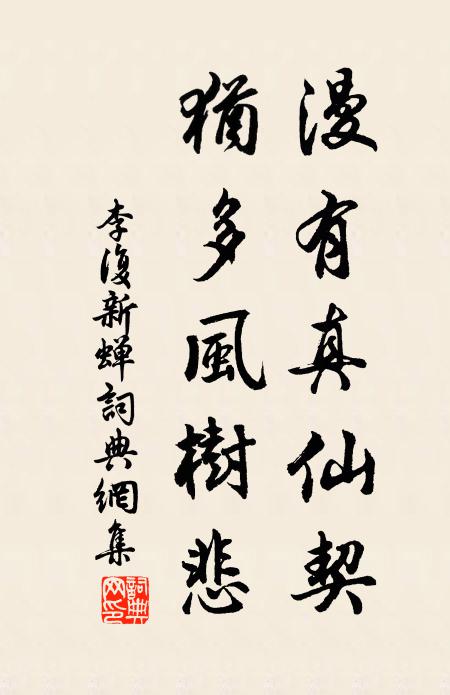 漫有真仙契
猶多風樹悲
李復新蟬詞典網集
詞典網印